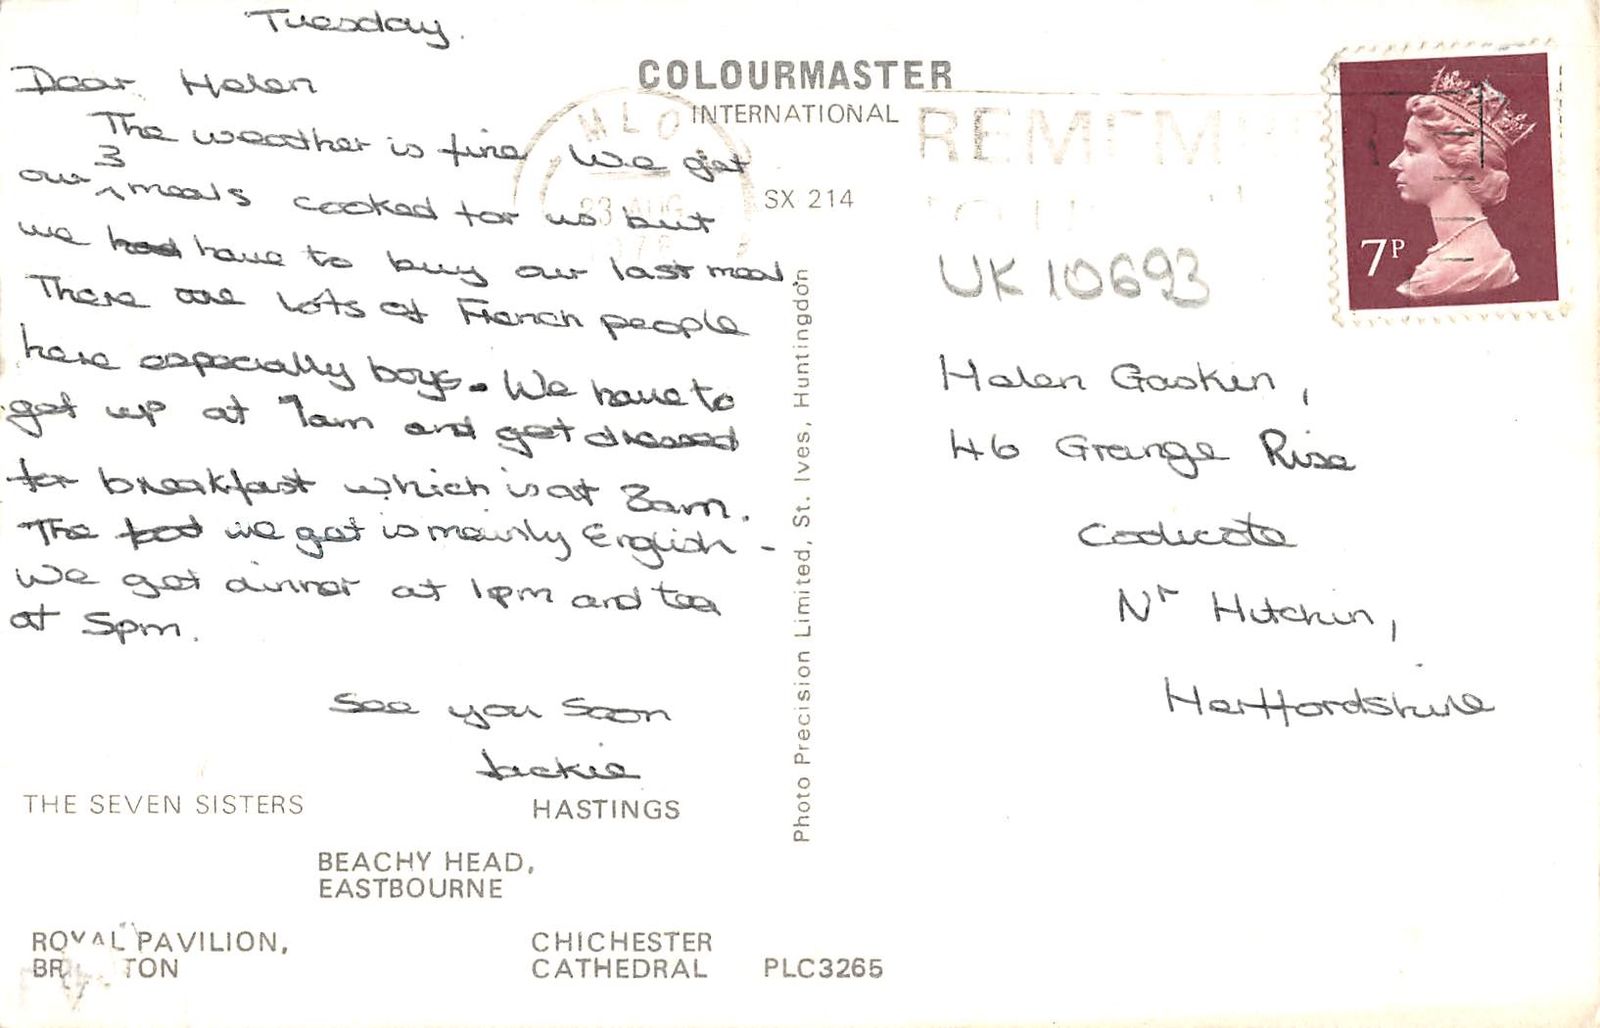 Tuesday.
Dear Helen
The weather is fine We get
our 3 meals cooked for us but
we had have to buy our last meal
There are lots of French people
here especially boys. We have to
get up at 7am and get dressed
for breakfast which is at 8am.
The food we get is mainly English -
We get dinner at 1pm and tea
at 5pm.
See you soon
Jackie
THE SEVEN SISTERS
HASTINGS
BEACHY HEAD,
EASTBOURNE
ROYAL PAVILION,
BR TON
CHICHESTER
CATHEDRAL
PLC3265
COLOURMASTER
INTERNATIONAL
SX 214
23 AUG
REMEM
Photo Precision Limited, St. Ives, Huntingdon
7P
UK 10693
Helen Gaskin,
46 Grange Rise
Codicote
Nr Hitchin,
Hertfordshire